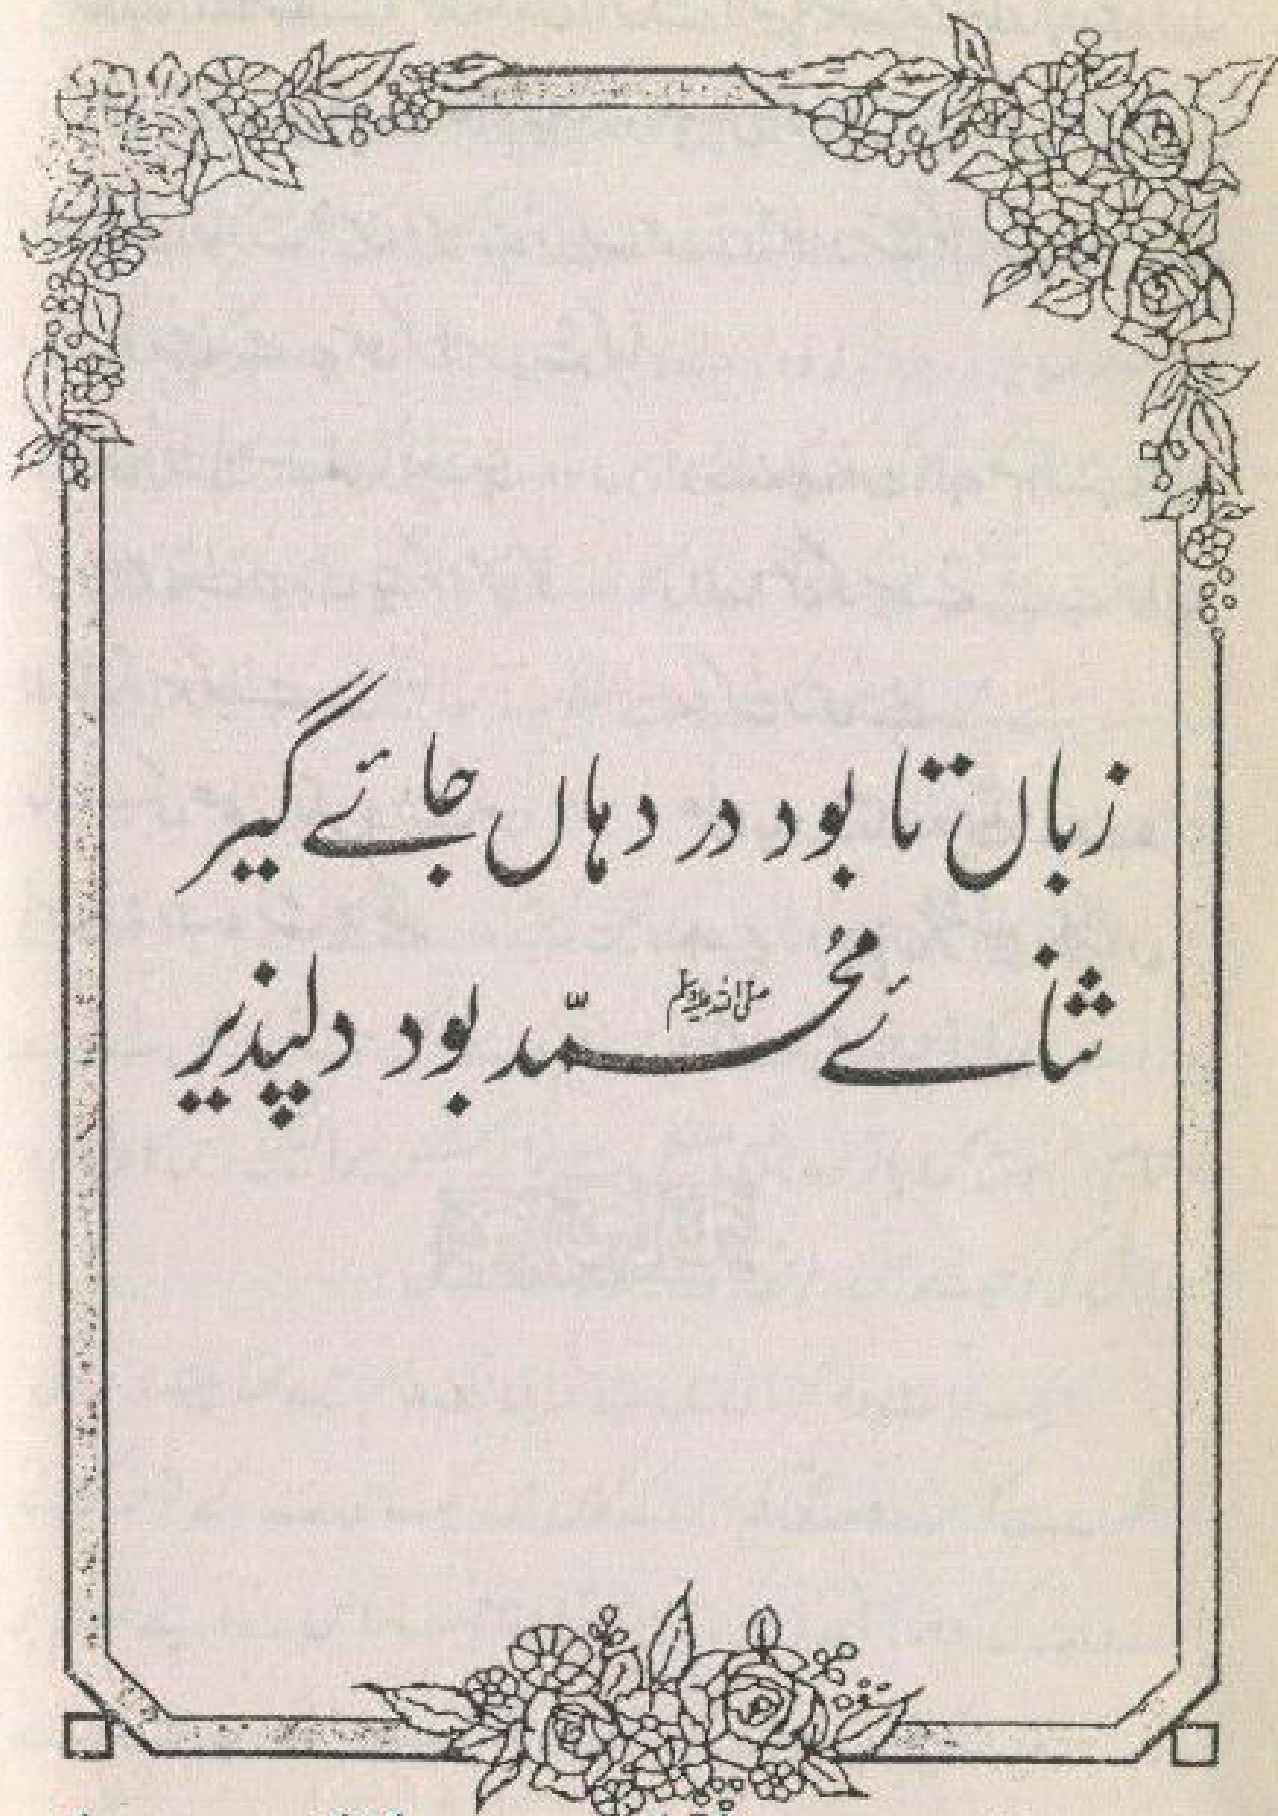 زباں تا بود در دہاں جائے گیر
ثنائے محمّد ﷺ بود دلپذیر